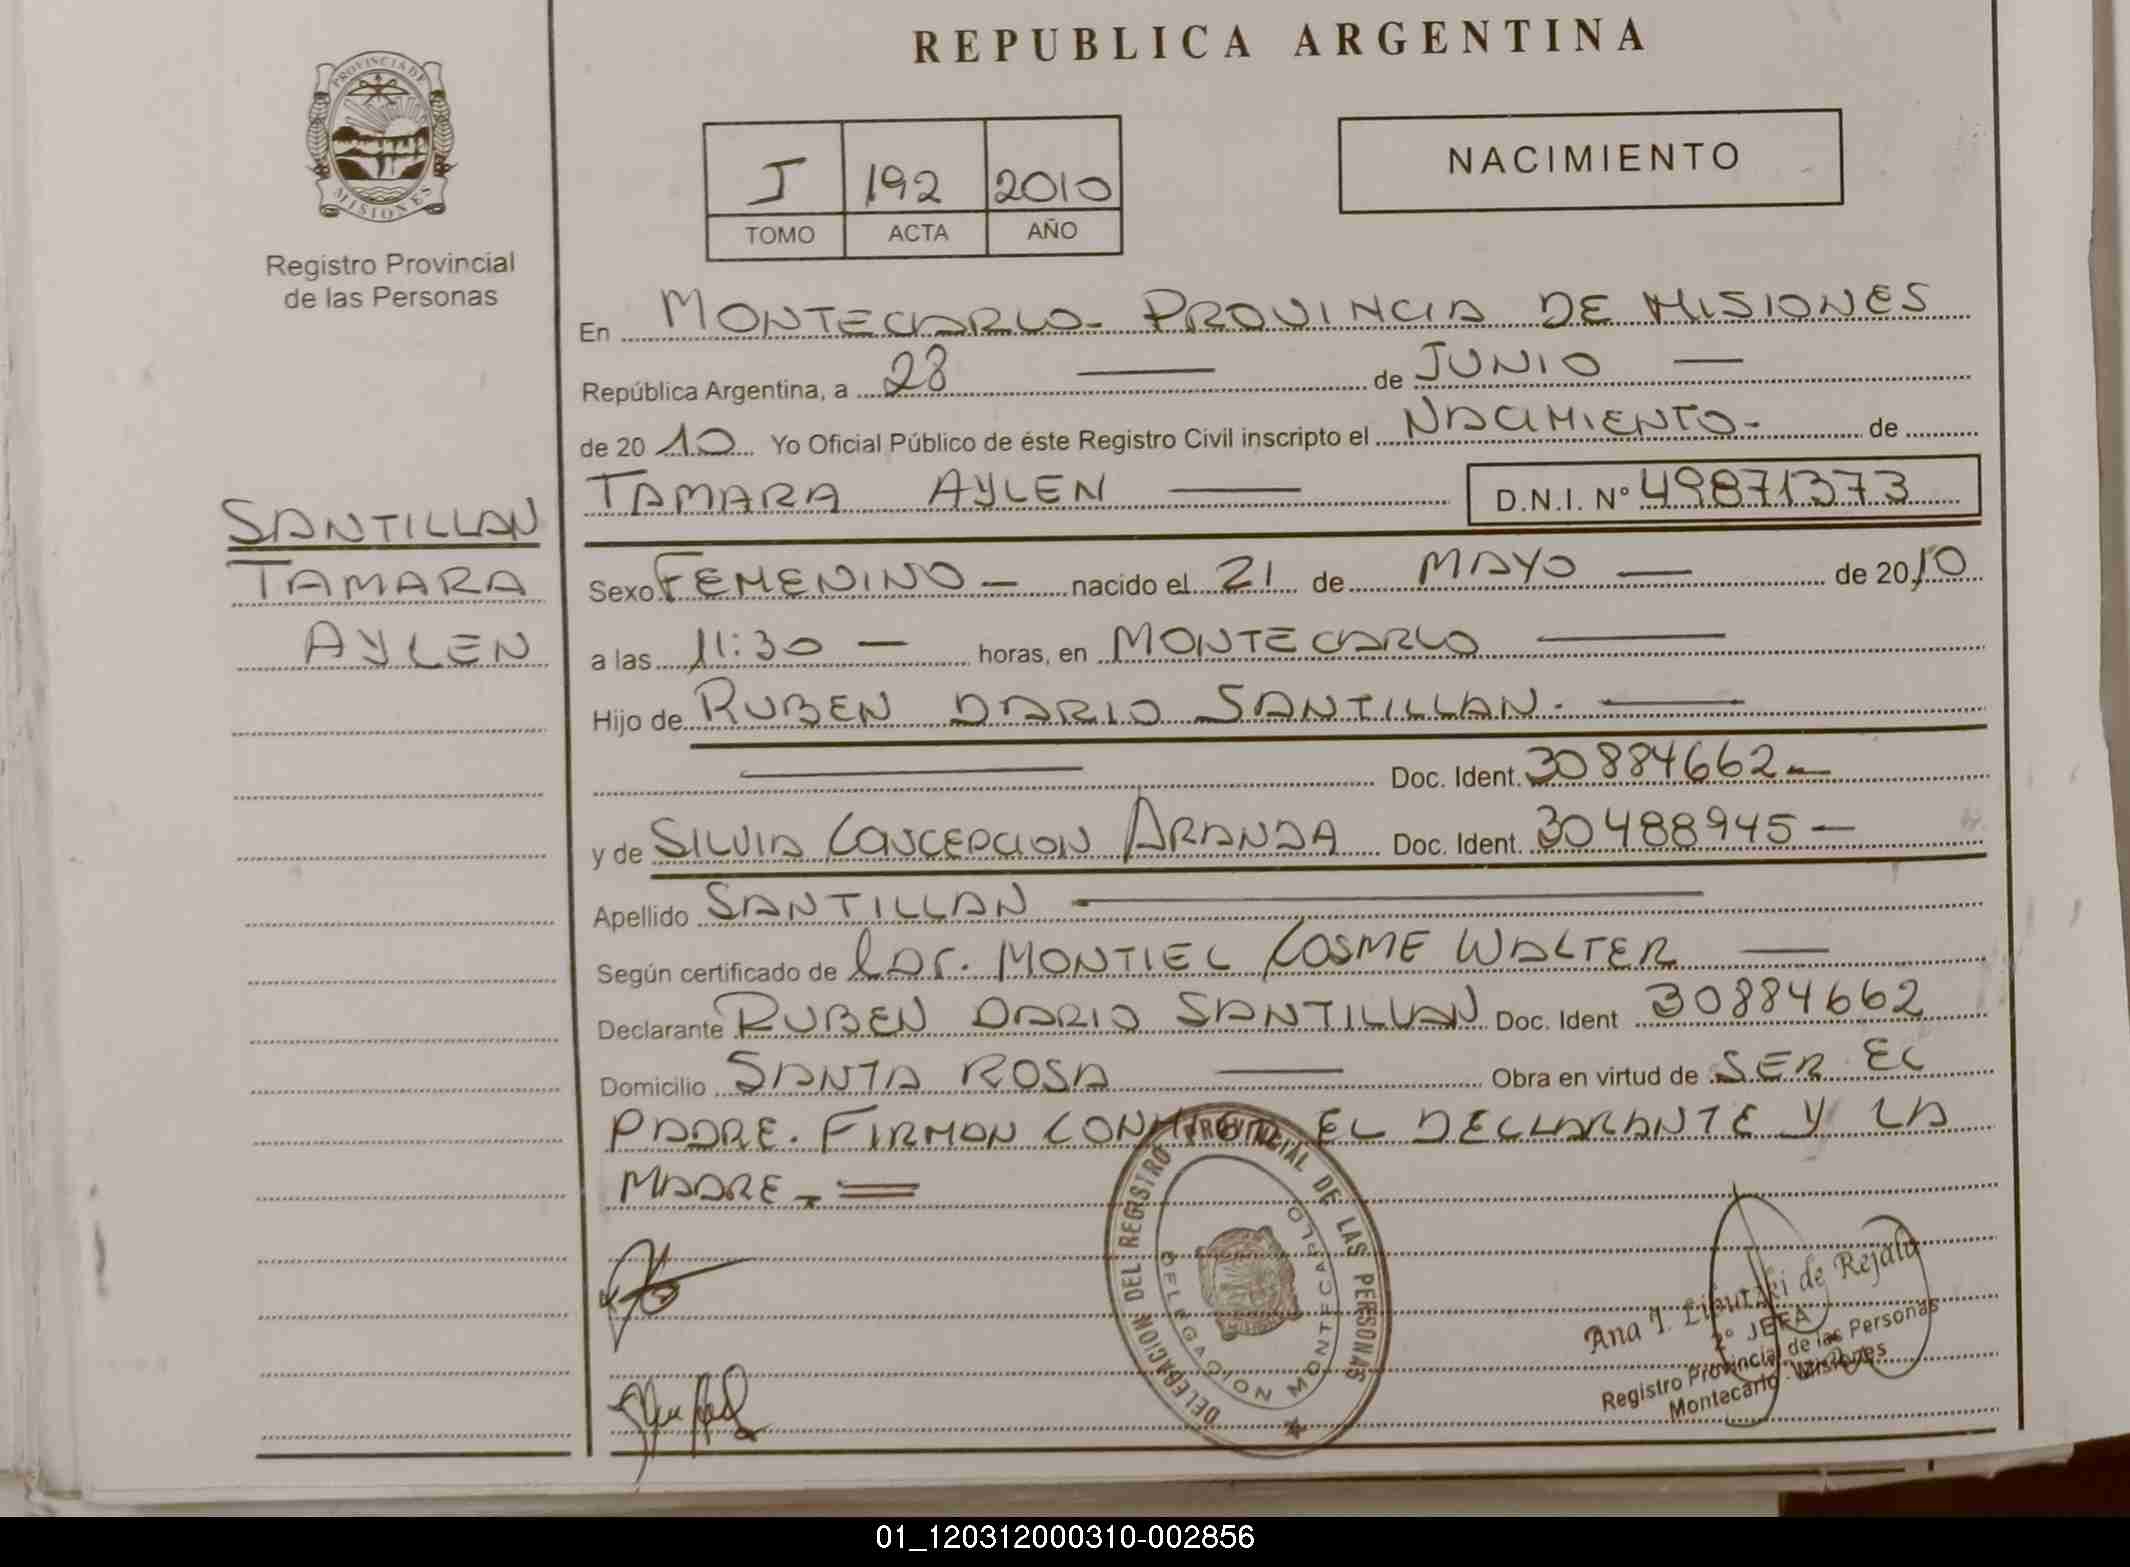 REPUBLICA ARGENTINA
PROVINCIA DE
MISIONES
Registro Provincial
de las Personas
I 192 2010
TOMO ACTA AÑO
NACIMIENTO
En MONTECARLO - PROVINCIA DE MISIONES
República Argentina, a 28 — de JUNIO —
de 20 10 Yo Oficial Público de éste Registro Civil inscripto el NACIMIENTO - de
TAMARA AYLEN — D.N.I. N° 49871373
SANTILLAN
TAMARA
AYLEN
Sexo FEMENINO — nacido el 21 de MAYO — de 20 10
a las 11:30 — horas, en MONTECARLO —
Hijo de RUBEN DARIO SANTILLAN. —
— Doc. Ident. 30884662 -
y de SILVIA CONCEPCION ARANDA Doc. Ident. 30488945 —
Apellido SANTILLAN —
Según certificado de MONTIEL COSME WALTER —
Declarante RUBEN DARIO SANTILLAN Doc. Ident 30884662
Domicilio SANTA ROSA — Obra en virtud de SER EL
PADRE. FIRMAN CONMIGO EL DECLARANTE Y LA
MADRE. - =
DELEGACION DEL REGISTRO PROVINCIAL DE LAS PERSONAS
DELEGACION MONTECARLO
Ana de Rejala
2° JEFA
Registro Provincial de las Personas
Montecarlo - Misiones
01_120312000310-002856